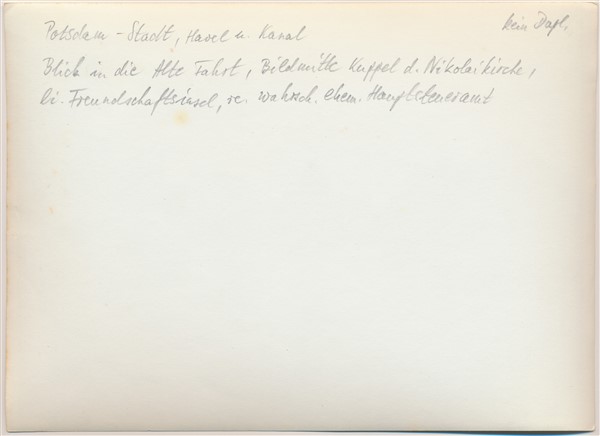 Potsdam - Stadt, Havel u. Kanal
kein Dupl.
Blick in die Alte Fahrt, Bildmitte Kuppel d. Nikolaikirche,
li. Freundschaftsinsel, re. wahrsch. ehem. Hauptsteueramt